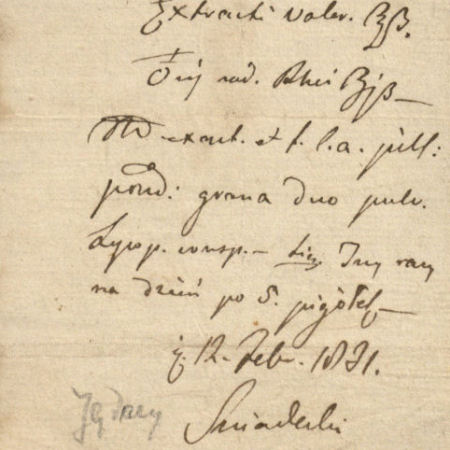 Extracti Valer. ʒβ.
Pulv rad. Rhei ʒjβ
M exact. et f. l. a. pill:
pond: grana duo pulv.
Lycop. consp. — Trzy razy
na dzień po 5. pigółek
12. Febr. 1831.
Śniadecki